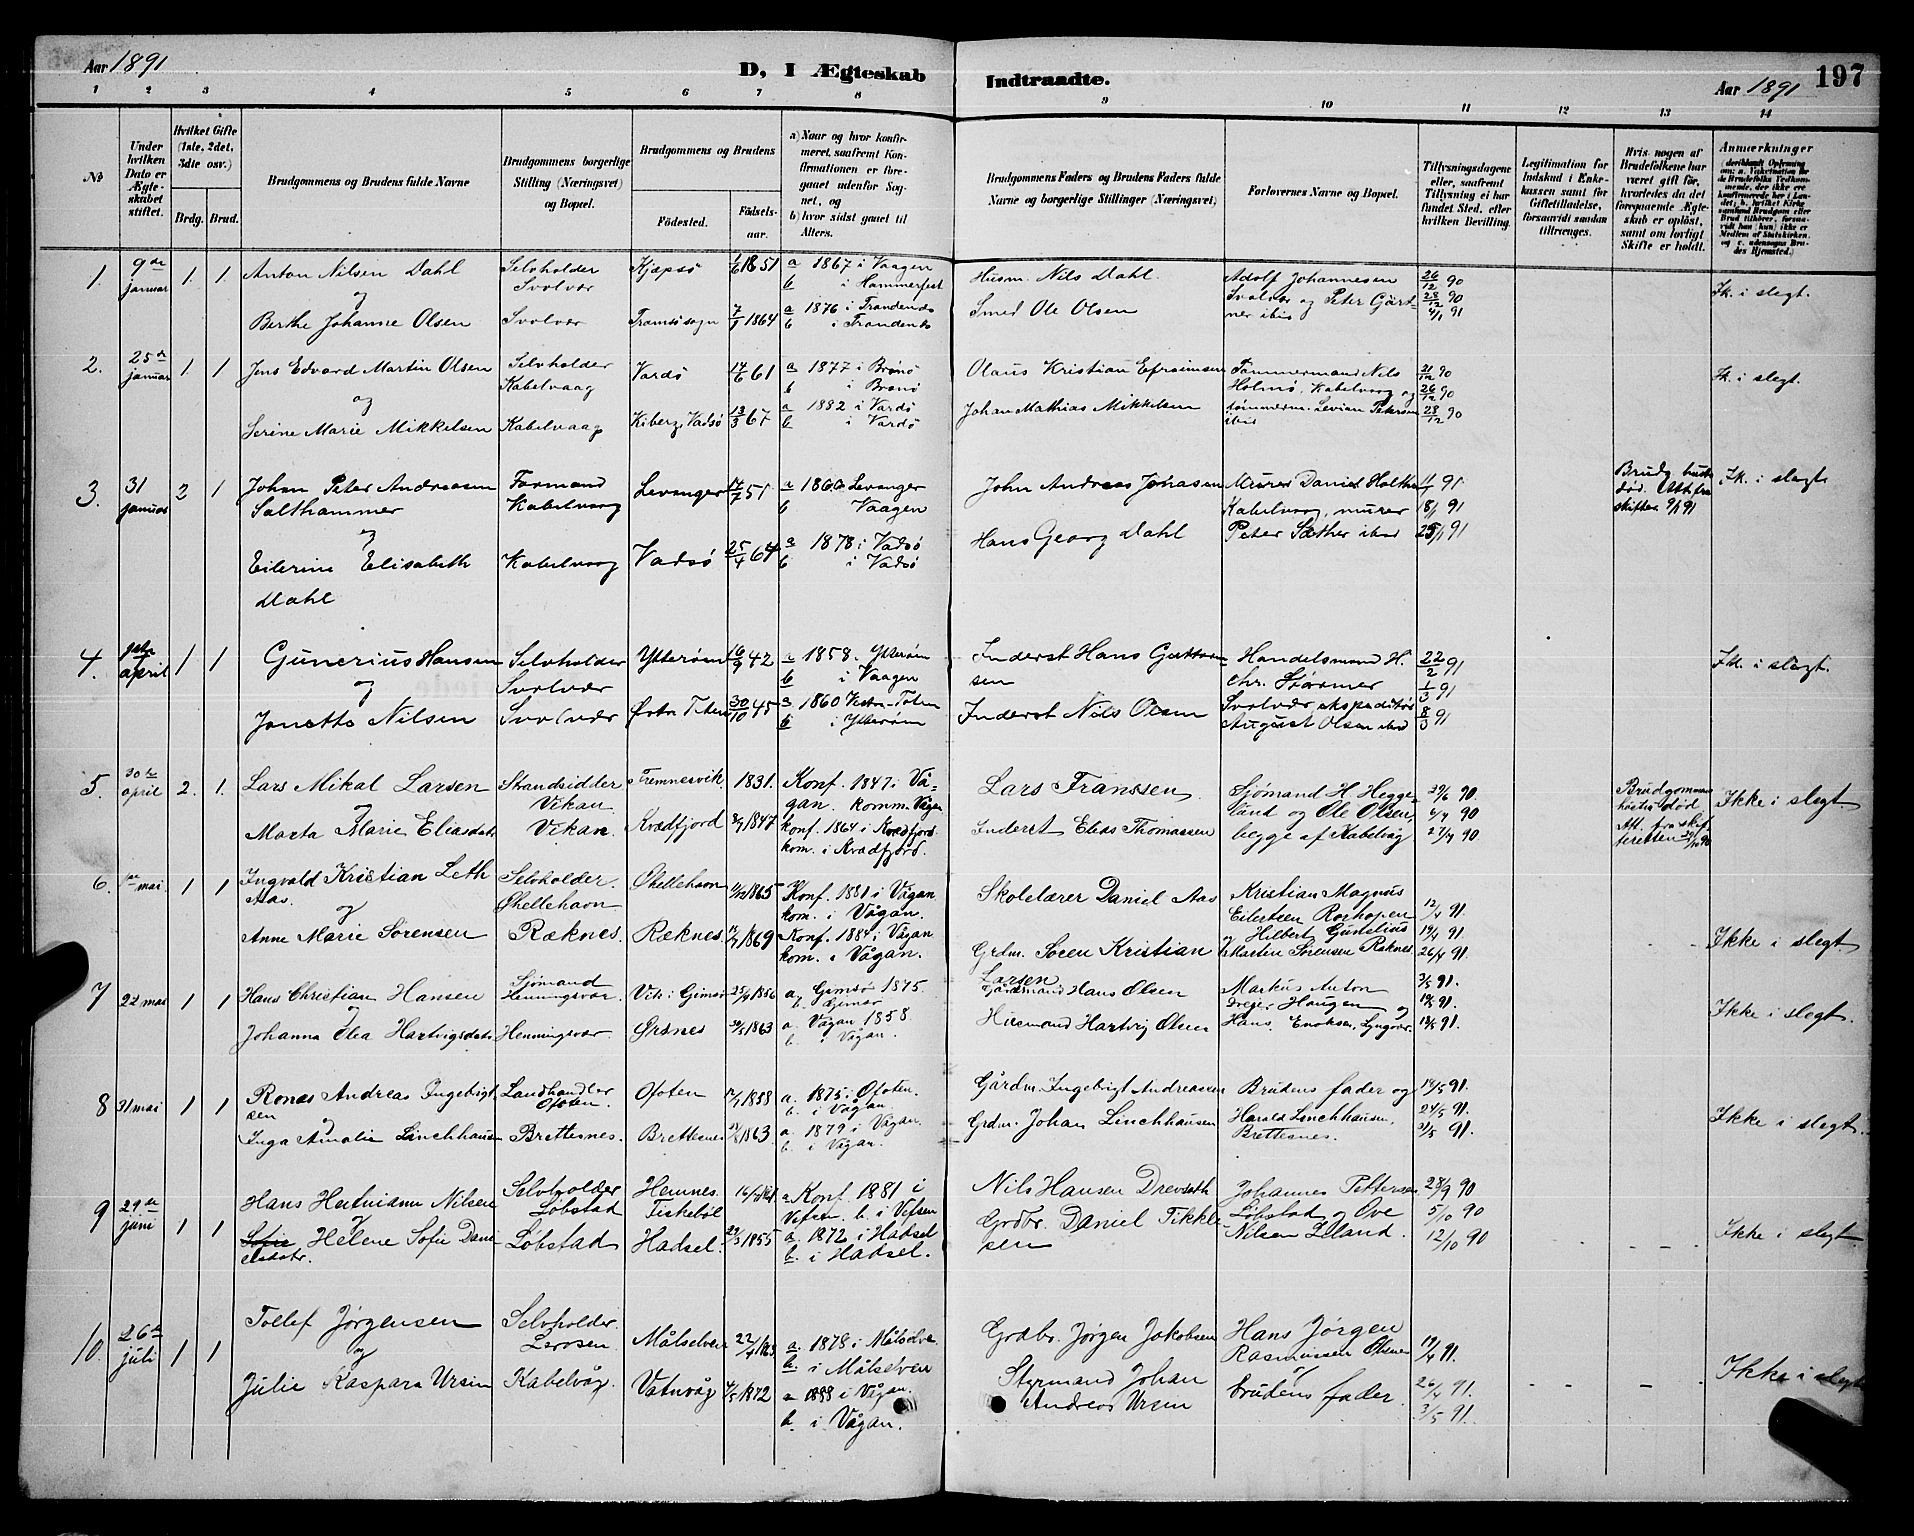 Aar 1891
D, I Ægteskab
Indtraadte.
Aar 1891
197
1 2 3 4 5 6 7 8 9 10 11 12 13 14
No
Under hvilken Dato er Ægteskabet stiftet.
Hvilket Gifte (1ste, 2det, 3die osv.)
Brdg. Brud.
Brudgommens og Brudens fulde Navne
Brudgommens borgerlige Stilling (Næringsvei) og Bopæl.
Brudgommens og Brudens
Fødested.
Fødselsaar.
a) Naar og hvor konfirmeret, saafremt Konfirmationen er foregaaet udenfor Sognet, og
b) hvor sidst gaaet til Alters.
Brudgommens Faders og Brudens Faders fulde Navne og borgerlige Stillinger (Næringsvei)
Forlovernes Navne og Bopæl.
Tillysningsdagene eller, saafremt Tillysning ei har fundet Sted, efter hvilken Bevilling.
Legitimation for Indskud i Enkekassen samt for Giftetilladelse, forsaavidt saadan tiltrænges.
Hvis nogen af Brudefolkene har været gift før, hvorledes da det foregaaende Ægteskab er opløst, samt om lovligt Skifte er holdt.
Anmærkninger
1. 9de januar 1. 1. Anton Nilsen Dahl Selvholder Svolvær Kjøpsø 1/6 1851 a 1867 i Vaagen b i Hammerfest Husm. Nils Dahl. Adolf Johannesen Svolvær og Peter Gärtner ibis 26/12 90 28/12 90 4/1 91 Ik. i slegt.
og
Berthe Johanne Olsen Svolvær Tromsøsogn 7/1 1864 a 1876 i Trondenæs b i Trondenæs Smed Ole Olsen
2. 25de januar 1 1 Jens Edvard Martin Olsen Selvholder Kabelvaag Vardø 17/6 61 a 1877 i Brønø b i Brønø Olaus Kristian Efraimsen Tømmermand Nils Holmø, Kabelvaag og tømmerm. Levian Petersen ibis 21/12 90 26/12 90 28/12 90 Ik. i slegt.
og
Serine Marie Mikkelsen Kabelvaag Kiberg, Vadsø 13/3 67 a 1882 i Vardø b i Vardø Johan Mathias Mikkelsen
3. 31 januar 2 1 Johan Peter Andreasen Salthammer Formand Kabelvaag Levanger 17/7 51 a 1860 Levanger b Vaagen John Andreas Jonasen Murer Daniel Holthe Kabelvaag, murer Peter Sæther ibid 11/1 91 18/1 91 25/1 91 Ik. i slegt.
og
Eilerine Elisabeth Dahl Kabelvaag Vadsø 25/4 64 a 1878 i Vadsø b i Vadsø Hans Georg Dahl
4. april 1 1 Gunerius Hansen Selvholder Svolvær Ytterøen 16/9 42 a 1858. Ytterøen b i Vaagen Inderst Hans Guttormsen Handelsmand H. Chr. Størmer Svolvær, ekspeditør August Olsen ibid 22/2 91 1/3 91 8/3 91 Ik. i slegt.
og
Jonette Nilsen Svolvær Østre Toten 30/10 45 a 1860 Vestre-Toten b i Ytterøen Inderst Nils Olsen
5. 30te april 2. 1. Lars Mikal Larsen Strandsidder Vikan Tremnesvik 1831. Konf. 1847 i Vågan. komm. Vågan Lars Franssen. Sjömand H. Heggeland og Ole Olsen, begge af Kabelvåg 29/6 90. 6/7 90 27/7 90 Ikke i slegt
og
Marta Marie Eliasdatr Vikan. Kvædfjord 1847 konf. 1864 i Kvædfjord. kom. i Kvædfjord. Inderst Elias Thomassen
6. mai. 1 1 Ingvald Kristian Leth Aas. Selvholder. Skellehavn Skellehavn 1865 Konf. 1881 i Vågan kom. i Vågan. Skolelærer Daniel Aas Kristian Magnus Eilertsen Rörhopen Hilbert Gunelius Marten Sörensen Ræknes 12/4 91. 19/4 91. 26/4 91. Ikke i slegt
og
Anne Marie Sörensen Ræknes. Ræknes 1869 Konf. 1884 i Vågan kom. i Vågan. Grdm. Sören Kristian Larsen
7 22 mai 1 1 Hans Christian Hansen Sjömand Henningsvær Vik i Gimsö 1856 a. Gimsö 1875 b. Gimsö Gårdmand Hans Olsen Markus Anton Dreyer Haugen og Hans Eriksen, Lyngvær 3/5 91. 10/5 91. 18/5 91. Ikke i slegt.
og
Johanna Elea Hartvigsdatr Henningsvær. Örsnes 1863 a. Vågan 1858. b. i Vågan. Husmand Hartvig Olsen
8 31 mai 1 1 Ronas Andreas Ingebrigtsen Landhandler Ofoten. Ofoten 1858 a. 1875 i Ofoten. b. i Vågan Gårdm. Ingebrigt Andreassen Brudens fader og Harald Linchhausen, Brettesnes. 19/5 91. 24/5 91. 31/5 91. Ikke i slegt.
og
Inga Amalie Linchhausen Brettesnes. Brettesnes 1863 a. 1879 i Vågan. b. i Vågan. Grdm. Johan Linchhausen
9 29de juni 1 1 Hans Hartmann Nilsen Selvholder Löbstad Hemnes. Fiskeböl a. Konf. 1881 i Vefsen. b. i Vefsen Nils Hansen Drevsath Johannes Pettersen Löbstad og Ove Nilsen Leland. 28/9 90 5/10 90 12/10 90 Ikke i slegt
Sofie Helene Sofie Danielsdatr. Löbstad Hadsel. 1855 a. 1872 i Hadsel b. i Hadsel. Grdbr. Daniel Tikklesen
10. 26de juli 1 1 Tollef Jørgensen Selvholder. Målselven 22/4 1863 a. 1878 i Målselven b. i Målselven Grdbr. Jørgen Jakobsen Hans Jørgen Rasmussen Olsen og brudens fader. 19/4 91. 26/4 91. 3/5 91. Ikke i slegt
og
Julie Kaspara Ursin Kabelvåg. Vatnvåg 1872 a 1888 i Vågan. b. i Vågan. Styrmand Johan Andreas Ursin